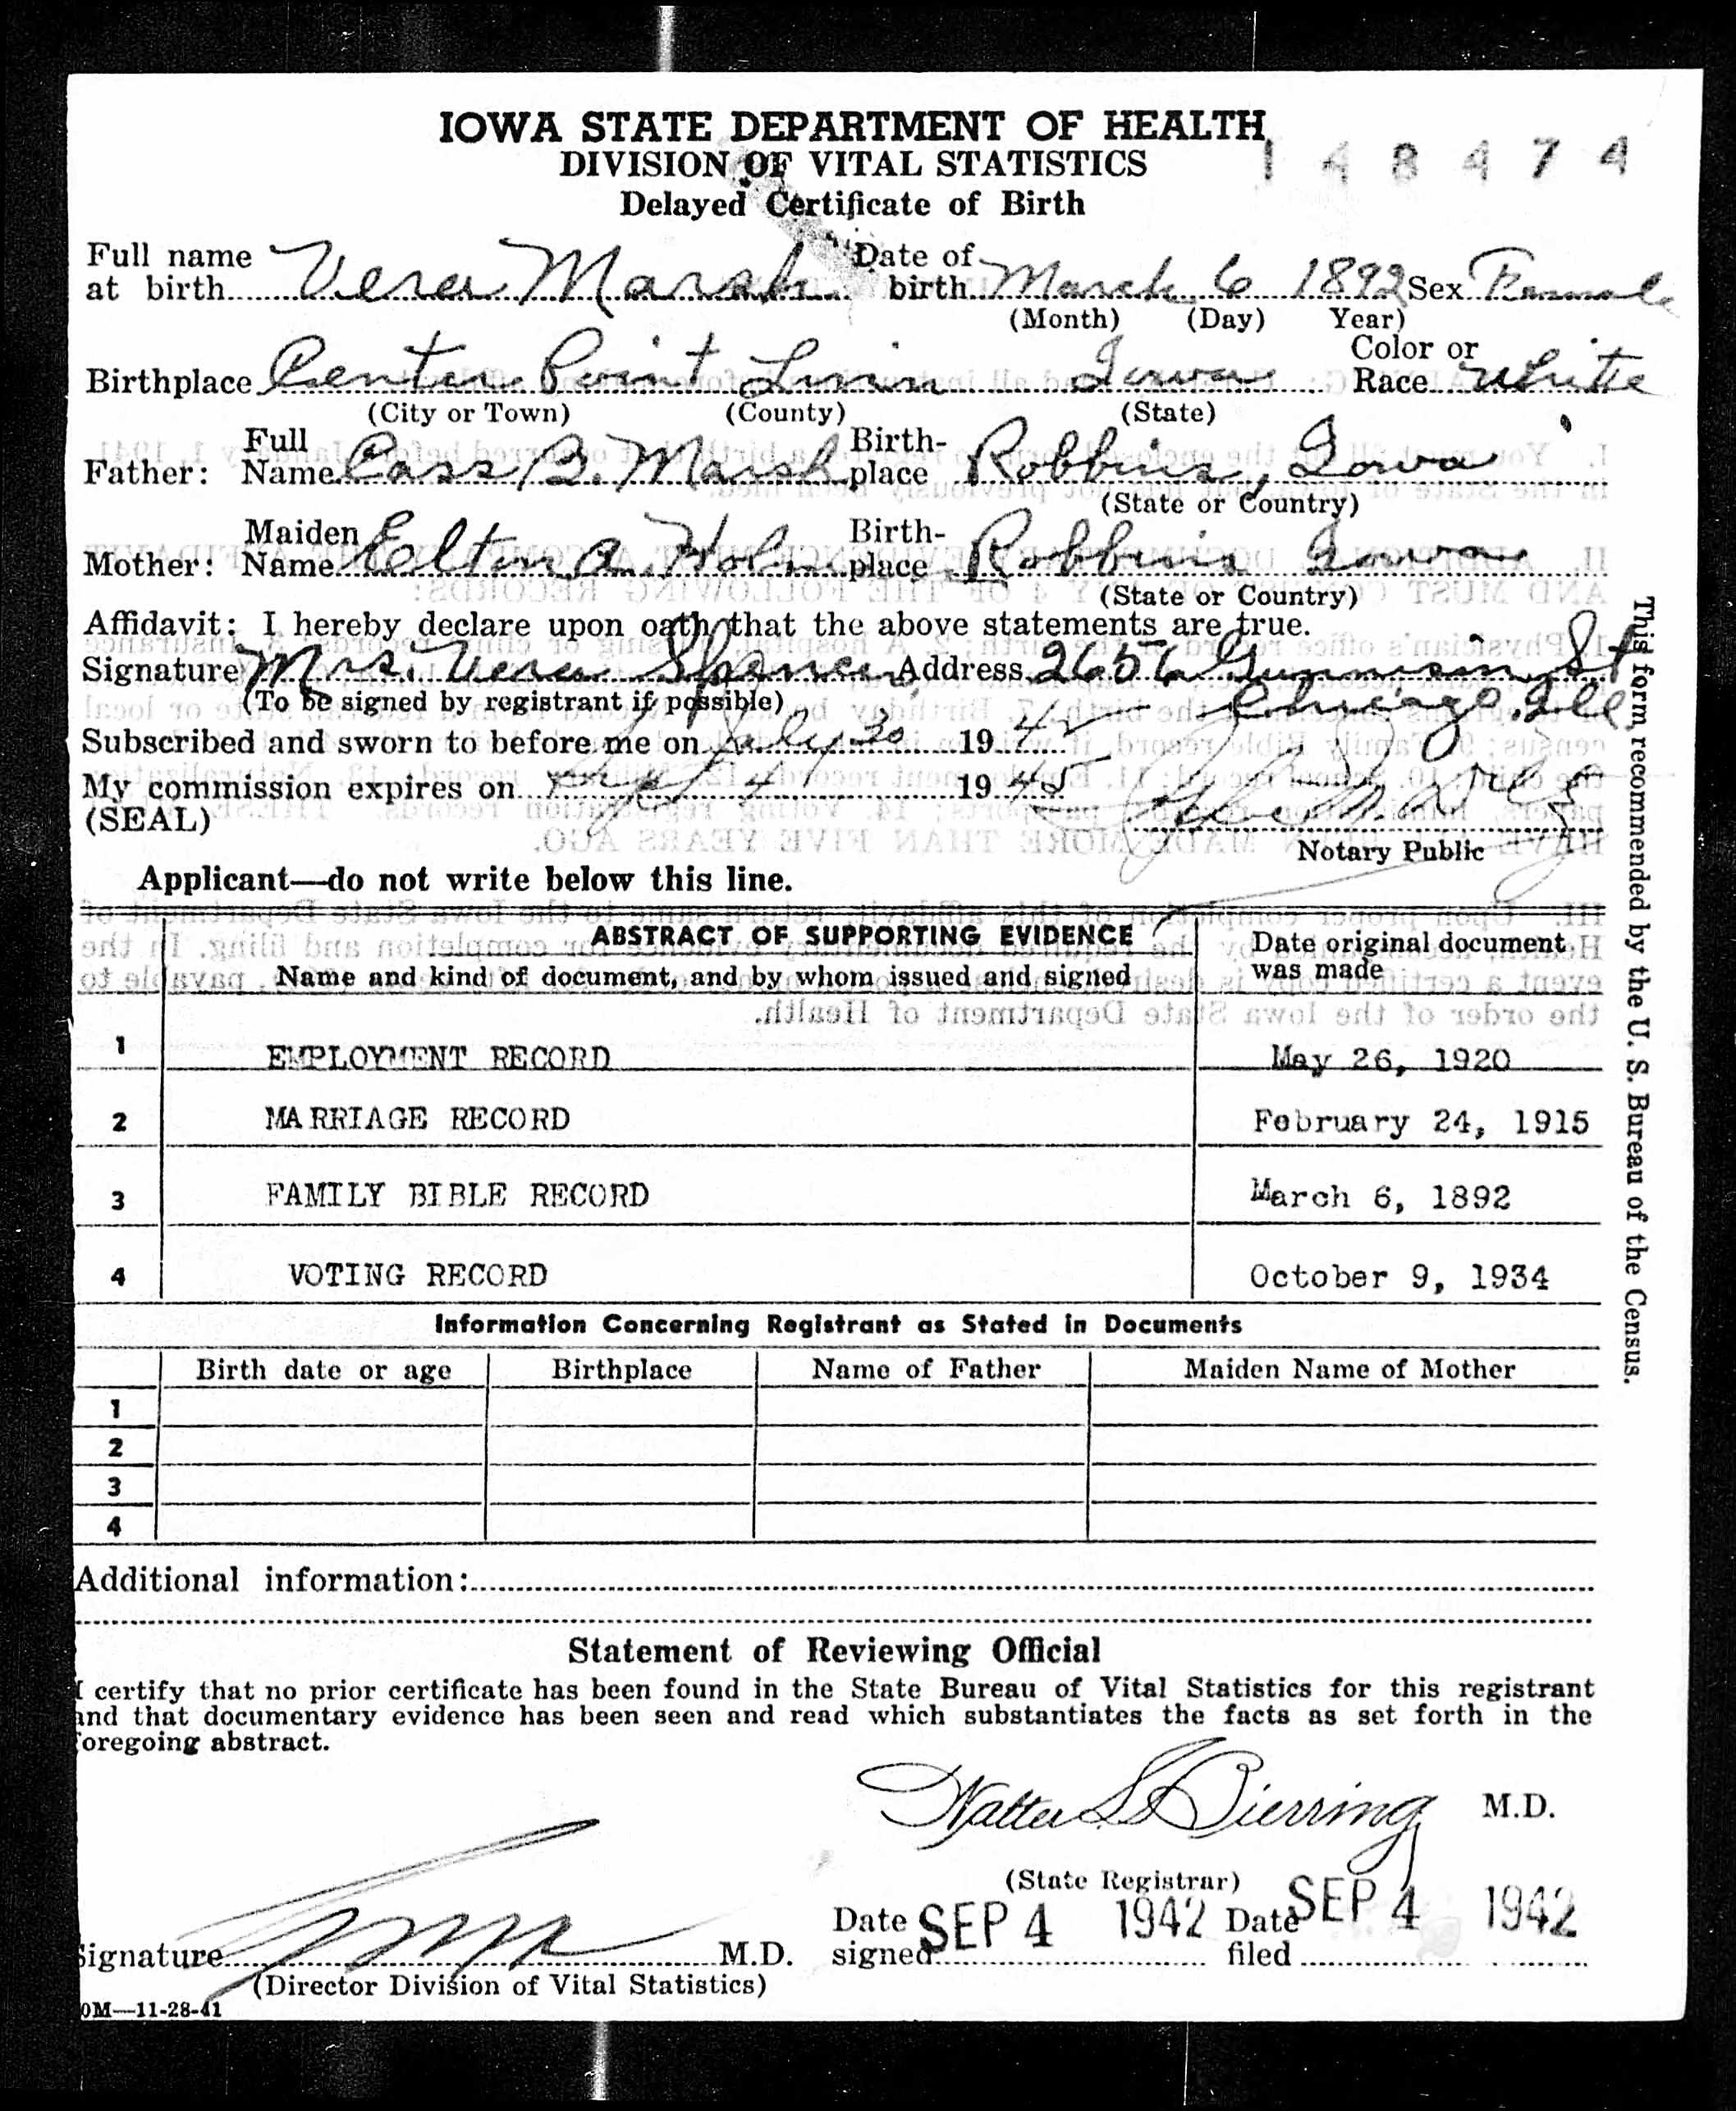 IOWA STATE DEPARTMENT OF HEALTH
148474
DIVISION OF VITAL STATISTICS
Delayed Certificate of Birth
Full name at birth Vera Marsh Date of birth March 6 1892 Sex Female
(Month) (Day) Year)
Birthplace Center Point Linn Iowa Color or Race White
(City or Town) (County) (State)
Father: Full Name Cass B. Marsh Birth-place Robbins, Iowa
(State or Country)
Mother: Maiden Name Elton A. Birth-place Robbins Iowa
(State or Country)
Affidavit: I hereby declare upon oath that the above statements are true.
Signature Mrs. Vera Spencer Address 2656 Gunnison St
(To be signed by registrant if possible) Chicago. Ill
Subscribed and sworn to before me on July 30 1942
My commission expires on Sept 4 1945
(SEAL)
Notary Public
Applicant—do not write below this line.
ABSTRACT OF SUPPORTING EVIDENCE
Name and kind of document, and by whom issued and signed
Date original document
was made
1 EMPLOYMENT RECORD May 26, 1920
2 MARRIAGE RECORD February 24, 1915
3 FAMILY BIBLE RECORD March 6, 1892
4 VOTING RECORD October 9, 1934
Information Concerning Registrant as Stated in Documents
Birth date or age Birthplace Name of Father Maiden Name of Mother
1
2
3
4
Additional information:
Statement of Reviewing Official
I certify that no prior certificate has been found in the State Bureau of Vital Statistics for this registrant
and that documentary evidence has been seen and read which substantiates the facts as set forth in the
foregoing abstract.
Walter L Bierring M.D.
(State Registrar)
Signature M.D. Date signed SEP 4 1942 Date filed SEP 4 1942
(Director Division of Vital Statistics)
0M—11-28-41
This form recommended by the U. S. Bureau of the Census.